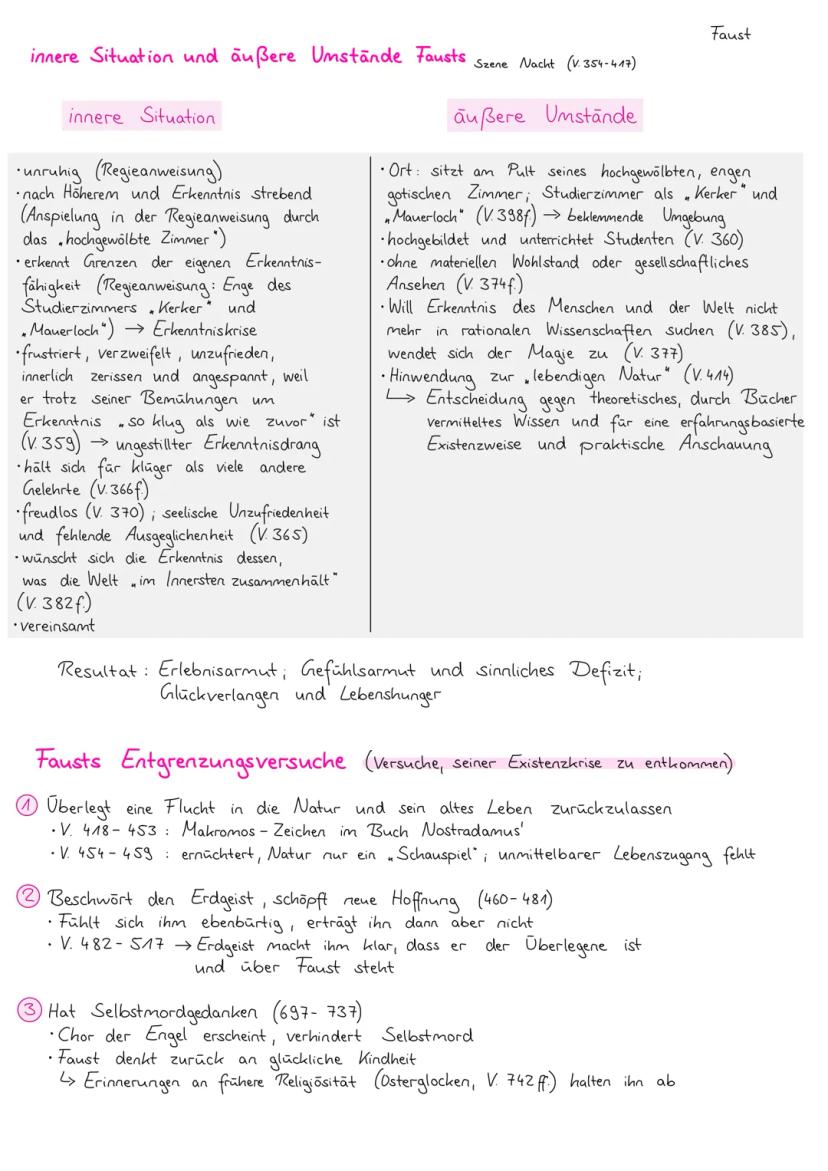 Faust
innere Situation und äußere Umstände Fausts Szene Nacht (V. 354-417)
innere Situation
· unruhig (Regieanweisung)
· nach Höherem und Erkenntnis strebend
(Anspielung in der Regieanweisung durch
das „hochgewölbte Zimmer")
· erkennt Grenzen der eigenen Erkenntnis-
fähigkeit (Regieanweisung: Enge des
Studierzimmers „Kerker" und
„Mauerloch") → Erkenntniskrise
· frustriert, verzweifelt, unzufrieden,
innerlich zerissen und angespannt, weil
er trotz seiner Bemühungen um
Erkenntnis „so klug als wie zuvor" ist
(V. 359) → ungestillter Erkenntnisdrang
· hält sich für klüger als viele andere
Gelehrte (V. 366f.)
· freudlos (V. 370); seelische Unzufriedenheit
und fehlende Ausgeglichenheit (V. 365)
· wünscht sich die Erkenntnis dessen,
was die Welt „im Innersten zusammenhält"
(V. 382f.)
· vereinsamt
äußere Umstände
· Ort: sitzt am Pult seines hochgewölbten, engen
gotischen Zimmer; Studierzimmer als „Kerker" und
„Mauerloch" (V. 398f.) → beklemmende Umgebung
· hochgebildet und unterrichtet Studenten (V. 360)
· ohne materiellen Wohlstand oder gesellschaftliches
Ansehen (V. 374f.)
· Will Erkenntnis des Menschen und der Welt nicht
mehr in rationalen Wissenschaften suchen (V. 385),
wendet sich der Magie zu (V. 377)
· Hinwendung zur „lebendigen Natur" (V. 414)
↳ Entscheidung gegen theoretisches, durch Bücher
vermitteltes Wissen und für eine erfahrungsbasierte
Existenzweise und praktische Anschauung
Resultat: Erlebnisarmut; Gefühlsarmut und sinnliches Defizit;
Glückverlangen und Lebenshunger
Fausts Entgrenzungsversuche (Versuche, seiner Existenzkrise zu entkommen)
① Überlegt eine Flucht in die Natur und sein altes Leben zurückzulassen
· V. 418-453 : Makromos-Zeichen im Buch Nostradamus'
· V. 454-459 : ernüchtert, Natur nur ein „Schauspiel"; unmittelbarer Lebenszugang fehlt
② Beschwört den Erdgeist, schöpft neue Hoffnung (460-481)
· Fühlt sich ihm ebenbürtig, erträgt ihn dann aber nicht
· V. 482-517 → Erdgeist macht ihm klar, dass er der Überlegene ist
und über Faust steht
③ Hat Selbstmordgedanken (697-737)
· Chor der Engel erscheint, verhindert Selbstmord
· Faust denkt zurück an glückliche Kindheit
↳ Erinnerungen an frühere Religiösität (Osterglocken, V. 742 ff.) halten ihn ab